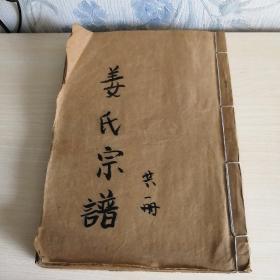 姜氏宗譜
共一册